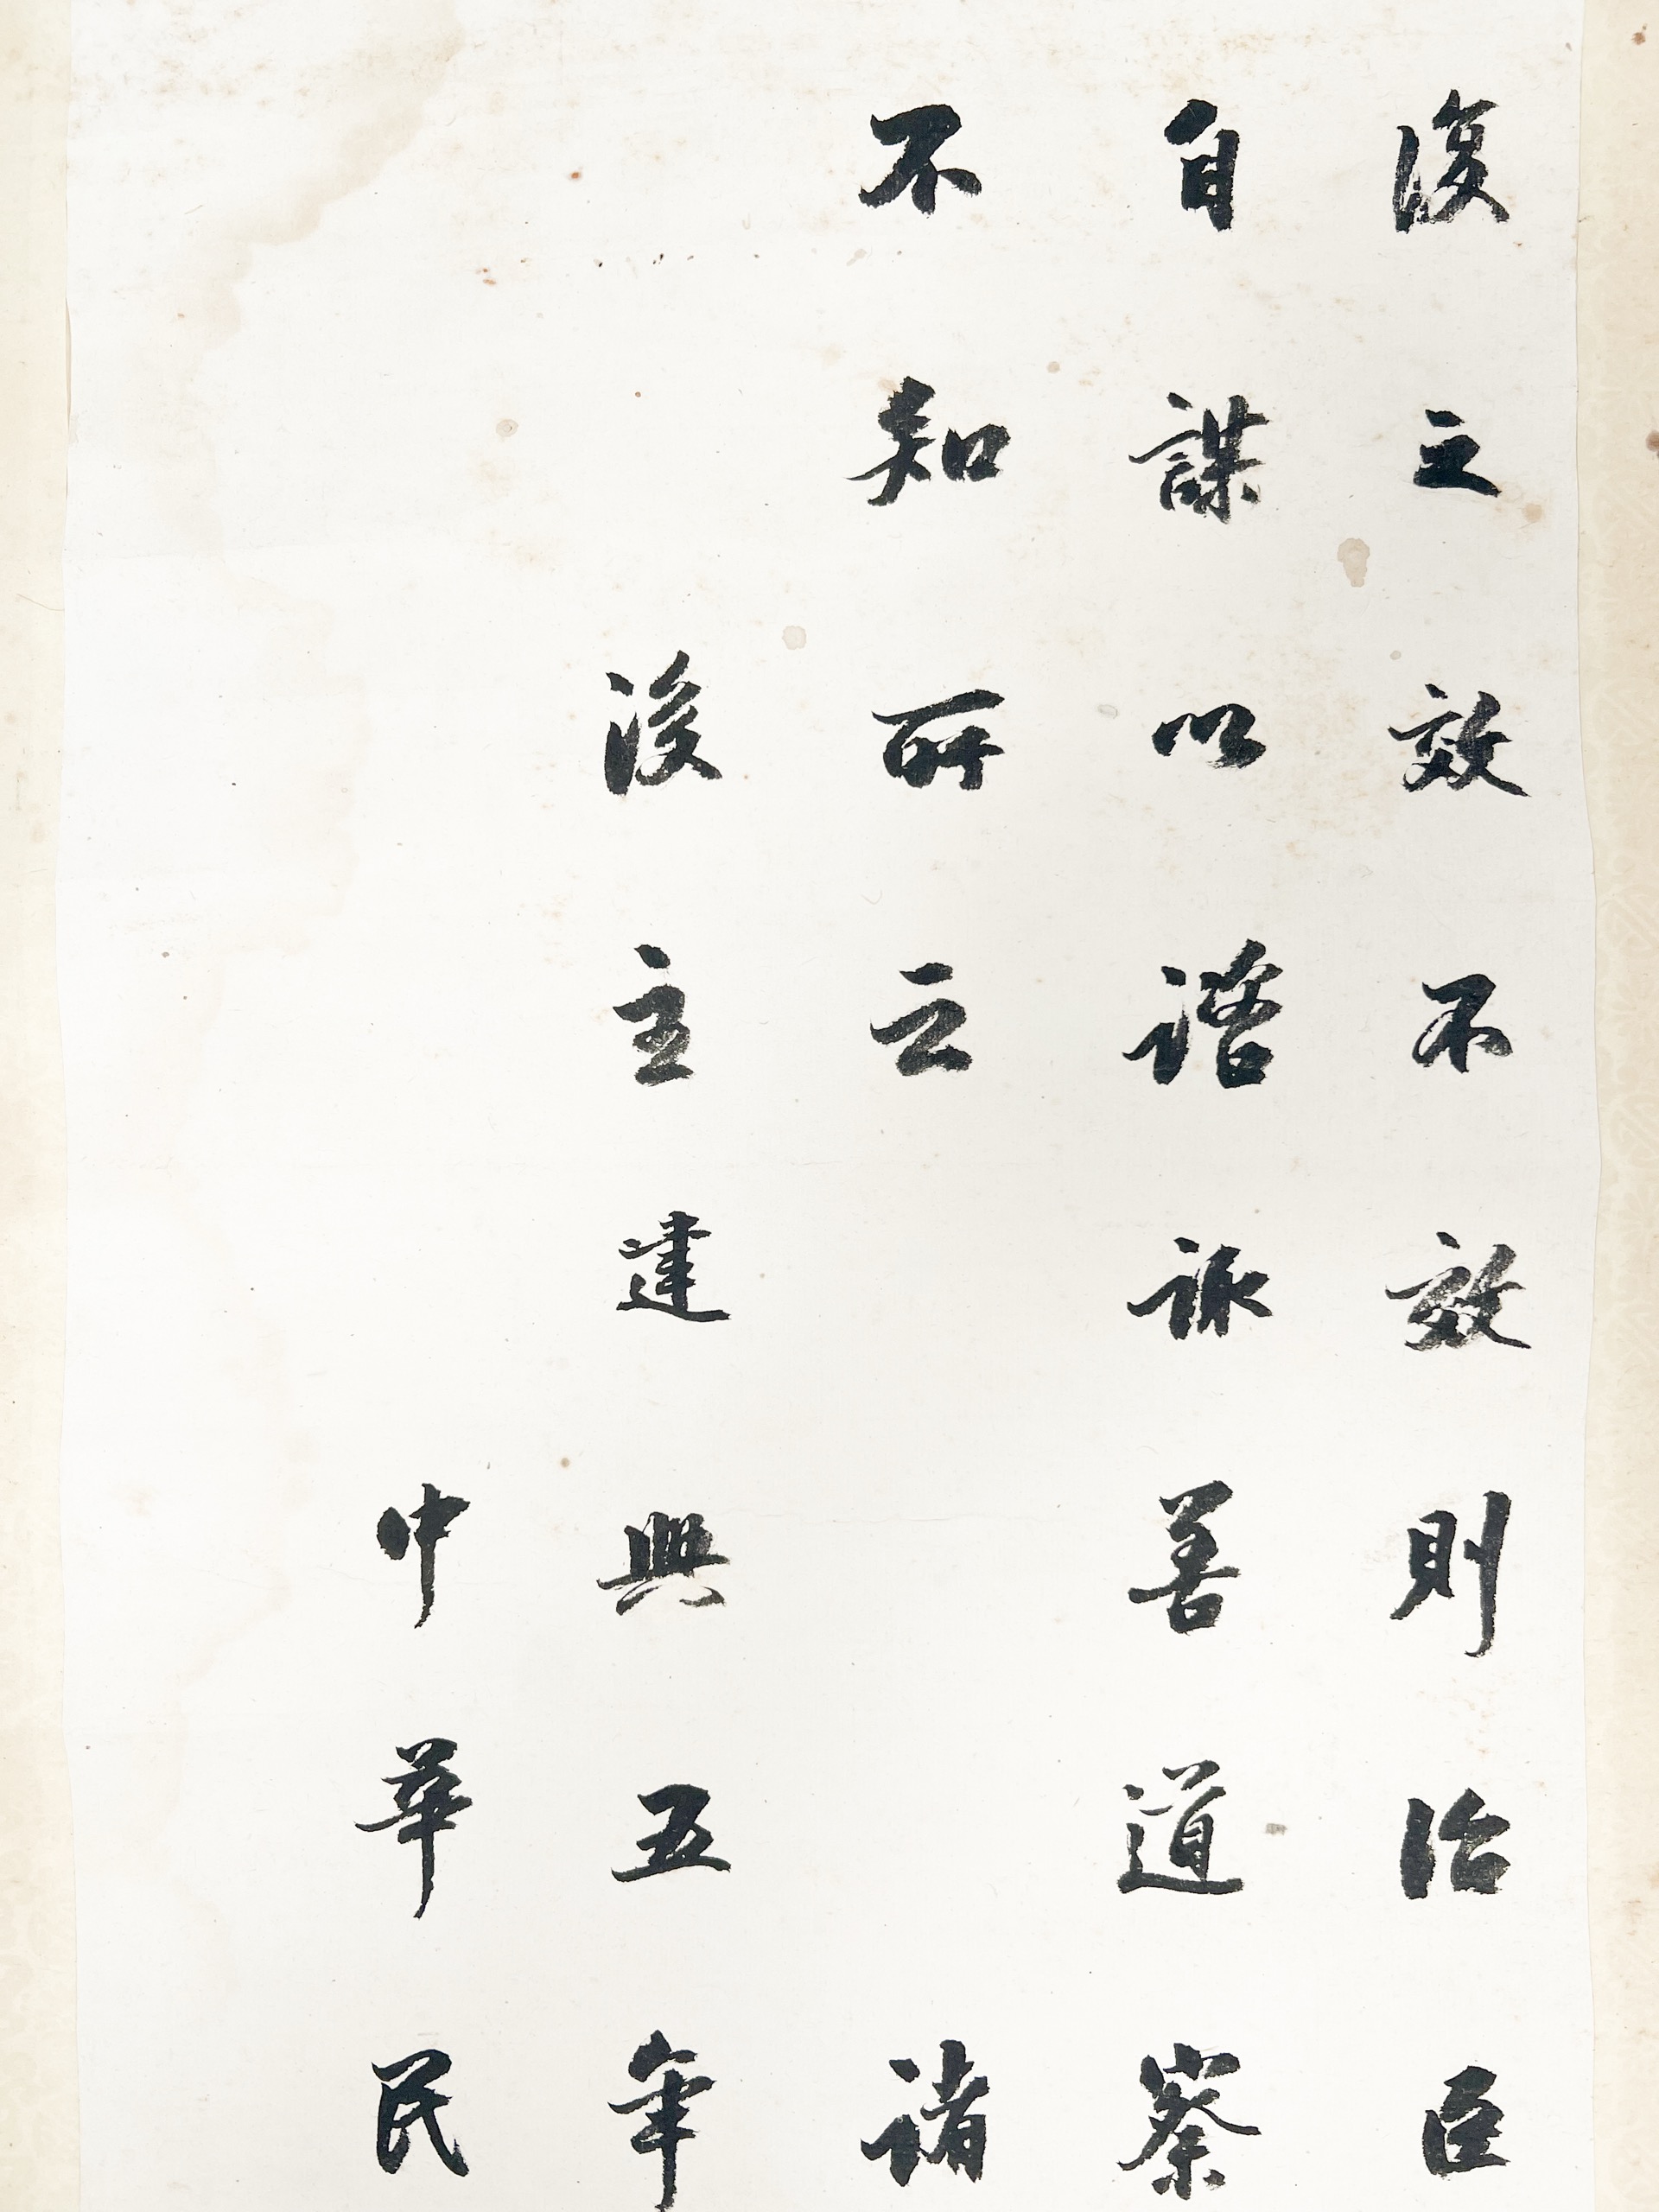 復之效不效則治臣
自謀以諮諏善道察
不知所云　諸
後主建興五年
中華民